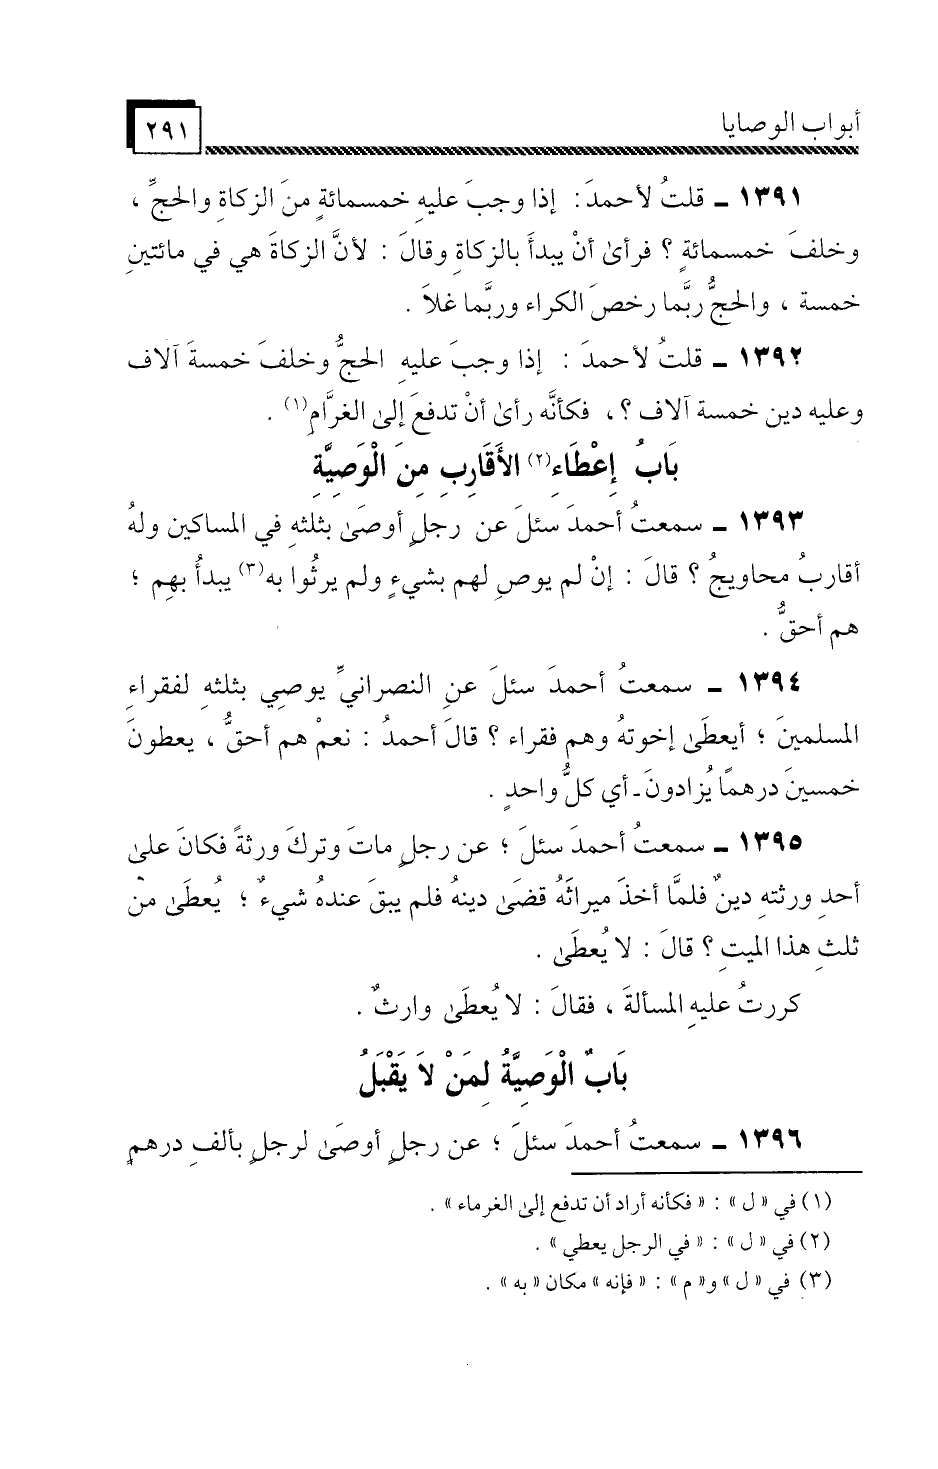 أبواب الوصايا
٢٩١
١٣٩١ ـ قلتُ لأحمدَ : إذا وجبَ عليهِ خمسمائةٍ منَ الزكاةِ والحجِّ ،
وخلفَ خمسمائةٍ ؟ فرأىٰ أنْ يبدأَ بالزكاةِ وقالَ : لأنَّ الزكاةَ هي في مائتينِ
خمسة ، والحجُّ ربَّما رخصَ الكراء وربَّما غلاَ .
١٣٩٢ ـ قلتُ لأحمدَ : إذا وجبَ عليهِ الحجُّ وخلفَ خمسةَ آلاف
وعليه دين خمسة آلاف ؟ ، فكأنَّه رأىٰ أنْ تدفعَ إلىٰ الغرَّامِ(١) .
بَابُ إِعْطَاءِ(٢) الأَقَارِبِ مِنَ الْوَصِيَّةِ
١٣٩٣ ـ سمعتُ أحمدَ سئلَ عن رجلٍ أوصَىٰ بثلثهِ في المساكين ولهُ
أقاربُ محاويجُ ؟ قالَ : إنْ لم يوصِ لهم بشيءٍ ولم يرثُوا به(٣) يبدأُ بهِم ؛
هم أحقُّ .
١٣٩٤ ـ سمعتُ أحمدَ سئلَ عنِ النصرانيِّ يوصِي بثلثهِ لفقراءِ
المسلمينَ ؛ أيعطَىٰ إخوتهُ وهم فقراء ؟ قالَ أحمدُ : نعمْ هم أحقُّ ، يعطونَ
خمسينَ درهمًا يُزادونَ ـ أي كلُّ واحدٍ .
١٣٩٥ ـ سمعتُ أحمدَ سئلَ ؛ عن رجلٍ ماتَ وتركَ ورثةً فكانَ علىٰ
أحدِ ورثتهِ دينٌ فلمَّا أخذَ ميراثَهُ قضَىٰ دينهُ فلم يبقَ عندهُ شيءٌ ؛ يُعطَىٰ من
ثلثِ هذا الميتِ ؟ قالَ : لا يُعطَىٰ .
كررتُ عليهِ المسألةَ ، فقالَ : لا يُعطَىٰ وارثٌ .
بَابٌ الْوَصِيَّةُ لِمَنْ لاَ يَقْبَلُ
١٣٩٦ ـ سمعتُ أحمدَ سئلَ ؛ عن رجلٍ أوصَىٰ لرجلٍ بألفِ درهمٍ
(١) في « ل » : « فكأنه أراد أن تدفع إلىٰ الغرماء » .
(٢) في « ل » : « في الرجل يعطي » .
(٣) في « ل » و« م » : « فإنه » مكان « به » .